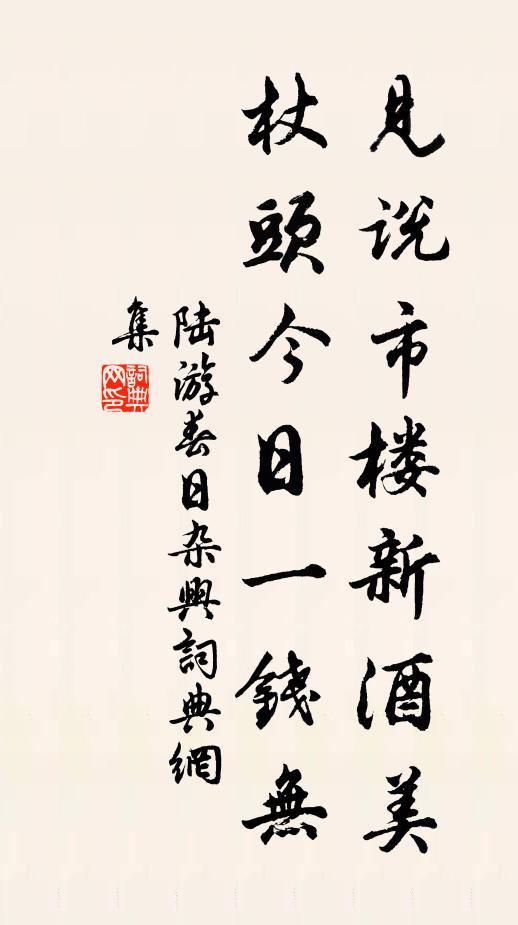 見説市楼新酒美
杖頭今日一錢無
陆游春日杂興詞典網
集
詞典
网印